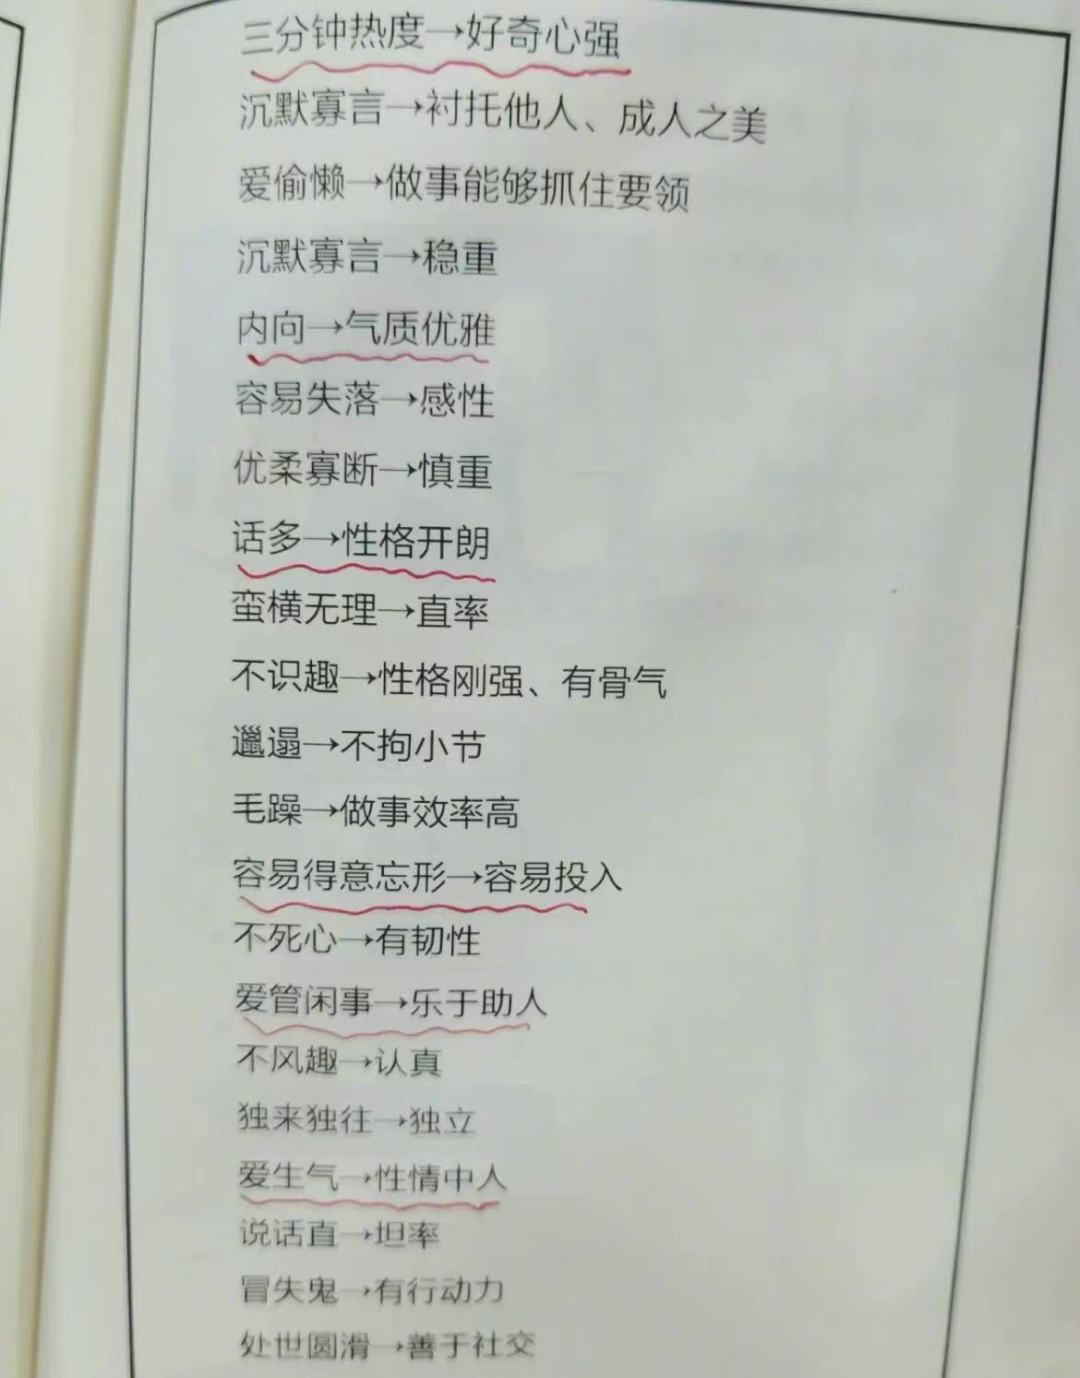 三分钟热度→好奇心强
沉默寡言→衬托他人、成人之美
爱偷懒→做事能够抓住要领
沉默寡言→稳重
内向→气质优雅
容易失落→感性
优柔寡断→慎重
话多→性格开朗
蛮横无理→直率
不识趣→性格刚强、有骨气
邋遢→不拘小节
毛躁→做事效率高
容易得意忘形→容易投入
不死心→有韧性
爱管闲事→乐于助人
不风趣→认真
独来独往→独立
爱生气→性情中人
说话直→坦率
冒失鬼→有行动力
处世圆滑→善于社交